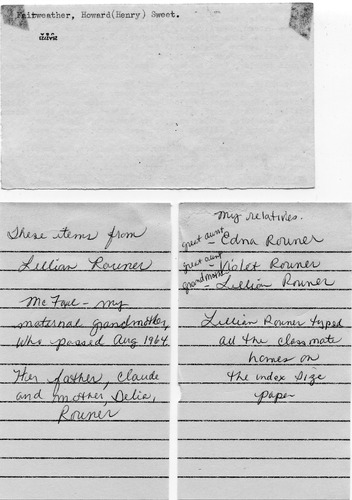 Fairweather, Howard(Henry) Sweet.
These items from
Lillian Rouner
McFaul - my
maternal grandmother,
who passed Aug 1964
Her father, Claude
and mother, Delia,
Rouner
My relatives.
great aunt - Edna Rouner
great aunt - Violet Rouner
grandmother - Lillian Rouner
Lillian Rouner typed
all the classmate
homes on
the index size
paper